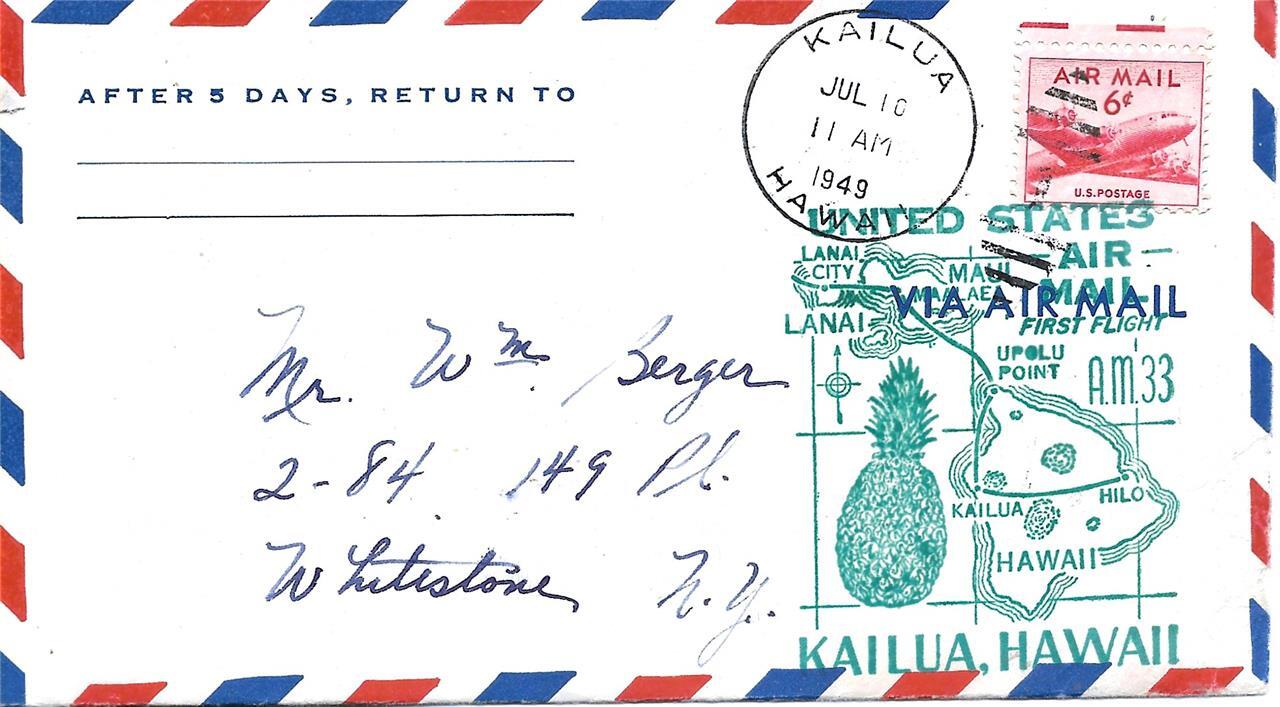 AFTER 5 DAYS, RETURN TO
KAILUA
JUL 10
11 AM
1949
HAWAII
AIR MAIL
6¢
U.S. POSTAGE
UNITED STATES
AIR
MAIL
VIA AIR MAIL
FIRST FLIGHT
A.M.33
LANAI
CITY
MAUI
LANAI
UPOLU
POINT
KAILUA
HILO
HAWAII
KAILUA, HAWAII
Mr. Wm. Berger
2-84 149 Pl.
Whitestone, N.Y.